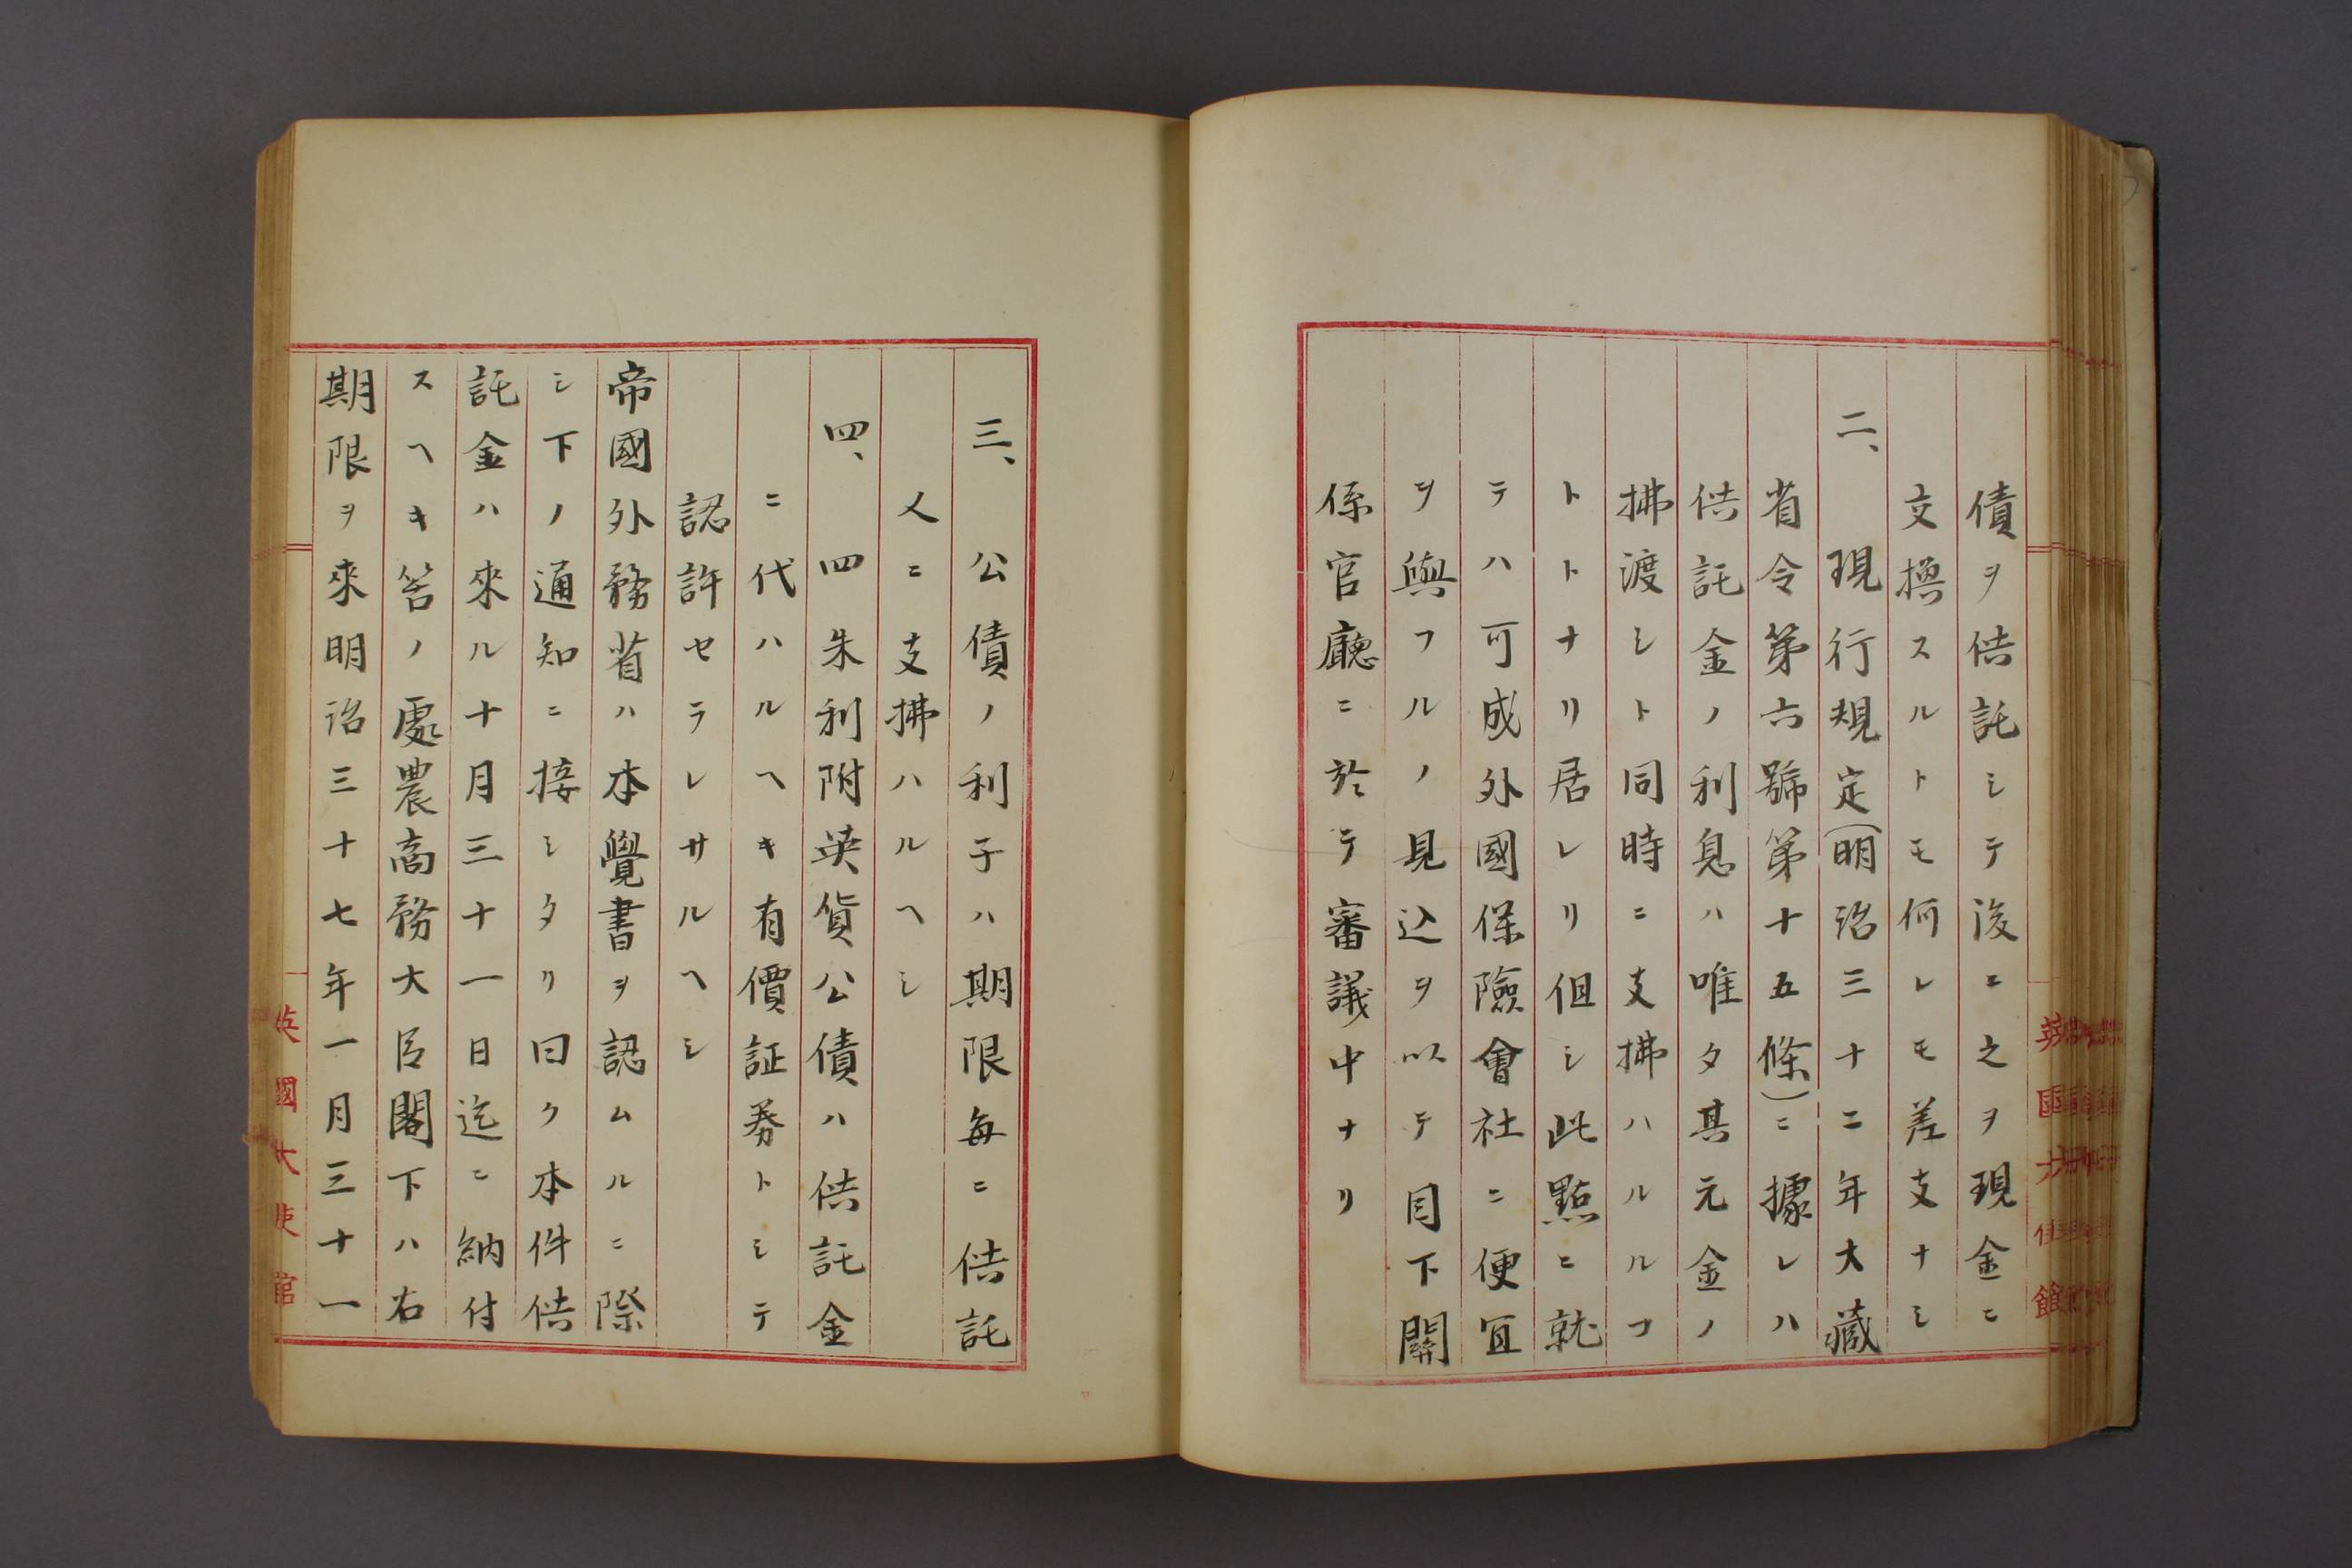 債ヲ供託シテ後ニ之ヲ現金ニ
交換スルトモ何レモ差支ナシ
二、
現行規定(明治三十二年大藏
省令第六號第十五條)ニ據レハ
供託金ノ利息ハ唯タ其元金ノ
拂渡シト同時ニ支拂ハルルコ
トトナリ居レリ但シ此點ニ就
テハ可成外國保險會社ニ便宜
ヲ與フルノ見込ヲ以テ目下關
係官廳ニ於テ審議中ナリ
三、公債ノ利子ハ期限毎ニ供託
人ニ支拂ハルヘシ
四、四朱利附英貨公債ハ供託金
ニ代ハルヘキ有價証券トシテ
認許セラレサルヘシ
帝國外務省ハ本覺書ヲ認ムルニ際
シ下ノ通知ニ接シタリ曰ク本件供
託金ハ來ル十月三十一日迄ニ納付
スヘキ筈ノ處農商務大臣閣下ハ右
期限ヲ來明治三十七年一月三十一
英國大使館
英國大使館